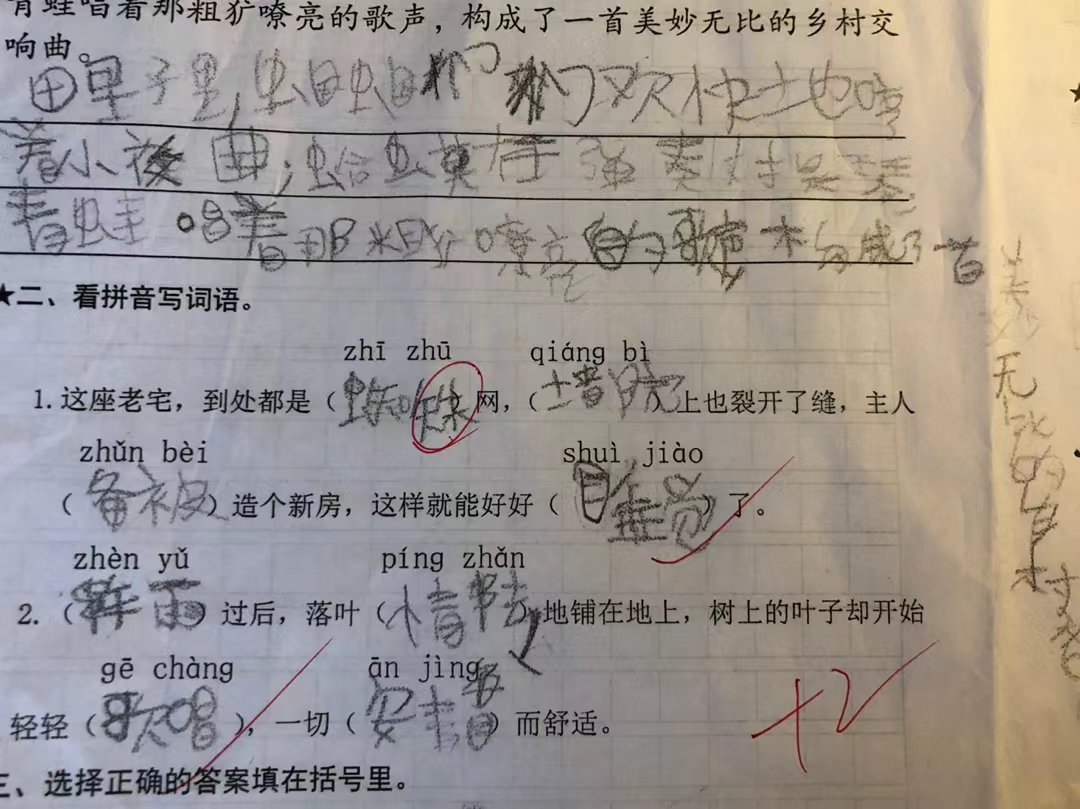 青蛙唱着那粗犷嘹亮的歌声，构成了一首美妙无比的乡村交
响曲。
田里子里，虫国虫国们 们欢快土也唱
着小夜曲；蛤蟆在弹奏
青蛙唱着那粗犷嘹亮的歌声构成了一首
美妙无比的乡村
★二、看拼音写词语。
zhī zhū qiáng bì
1.这座老宅，到处都是（蜘蛛）网，（墙）上也裂开了缝，主人
zhǔn bèi shuì jiào
（备被）造个新房，这样就能好好（睡）了。
zhèn yǔ píng zhǎn
2.（阵雨）过后，落叶（）地铺在地上，树上的叶子却开始
gē chàng ān jìng
轻轻（歌唱），一切（安）而舒适。
+2
三、选择正确的答案填在括号里。